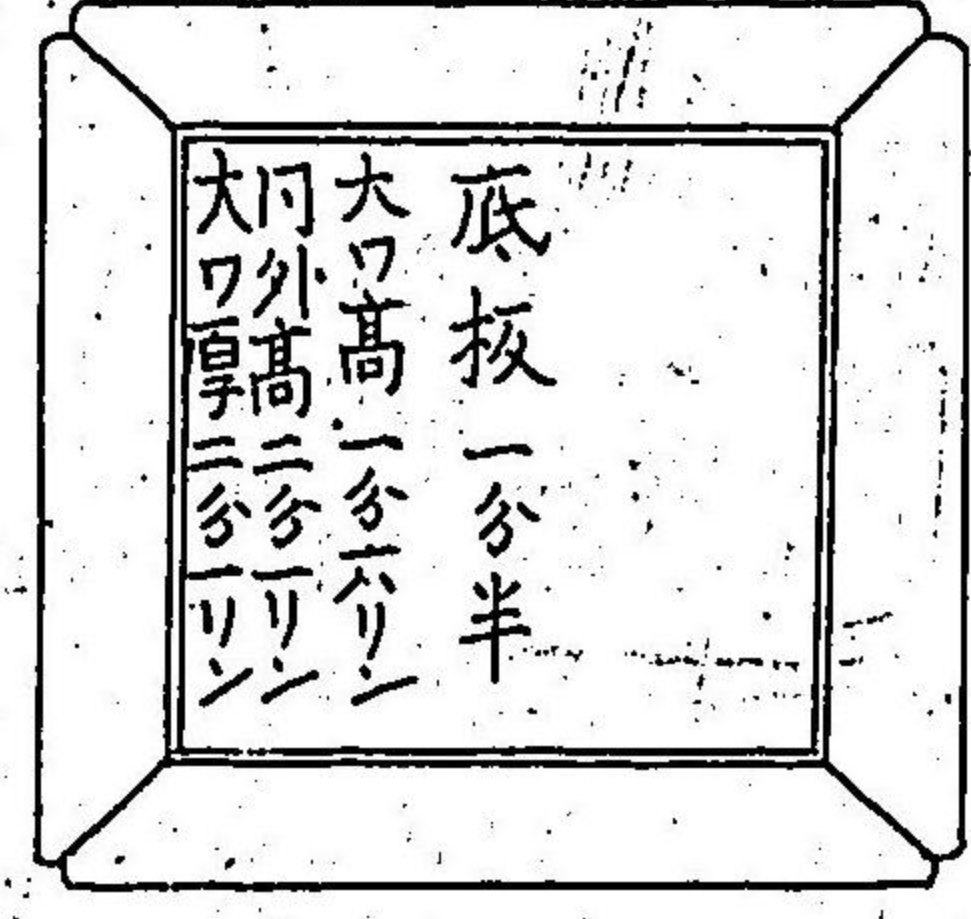 底板一分半
大ワ高一分六リン
同外高二分一リン
大ワ厚二分一リン